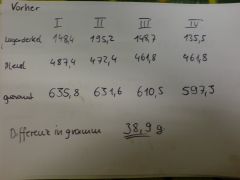 Vorher
I II III IV
Lagerdeckel 148,4 195,2 148,7 135,5
Pleuel 487,4 472,4 461,8 461,8
gesamt 635,8 631,6 610,5 597,3
Differenz in gramm 38,9 g